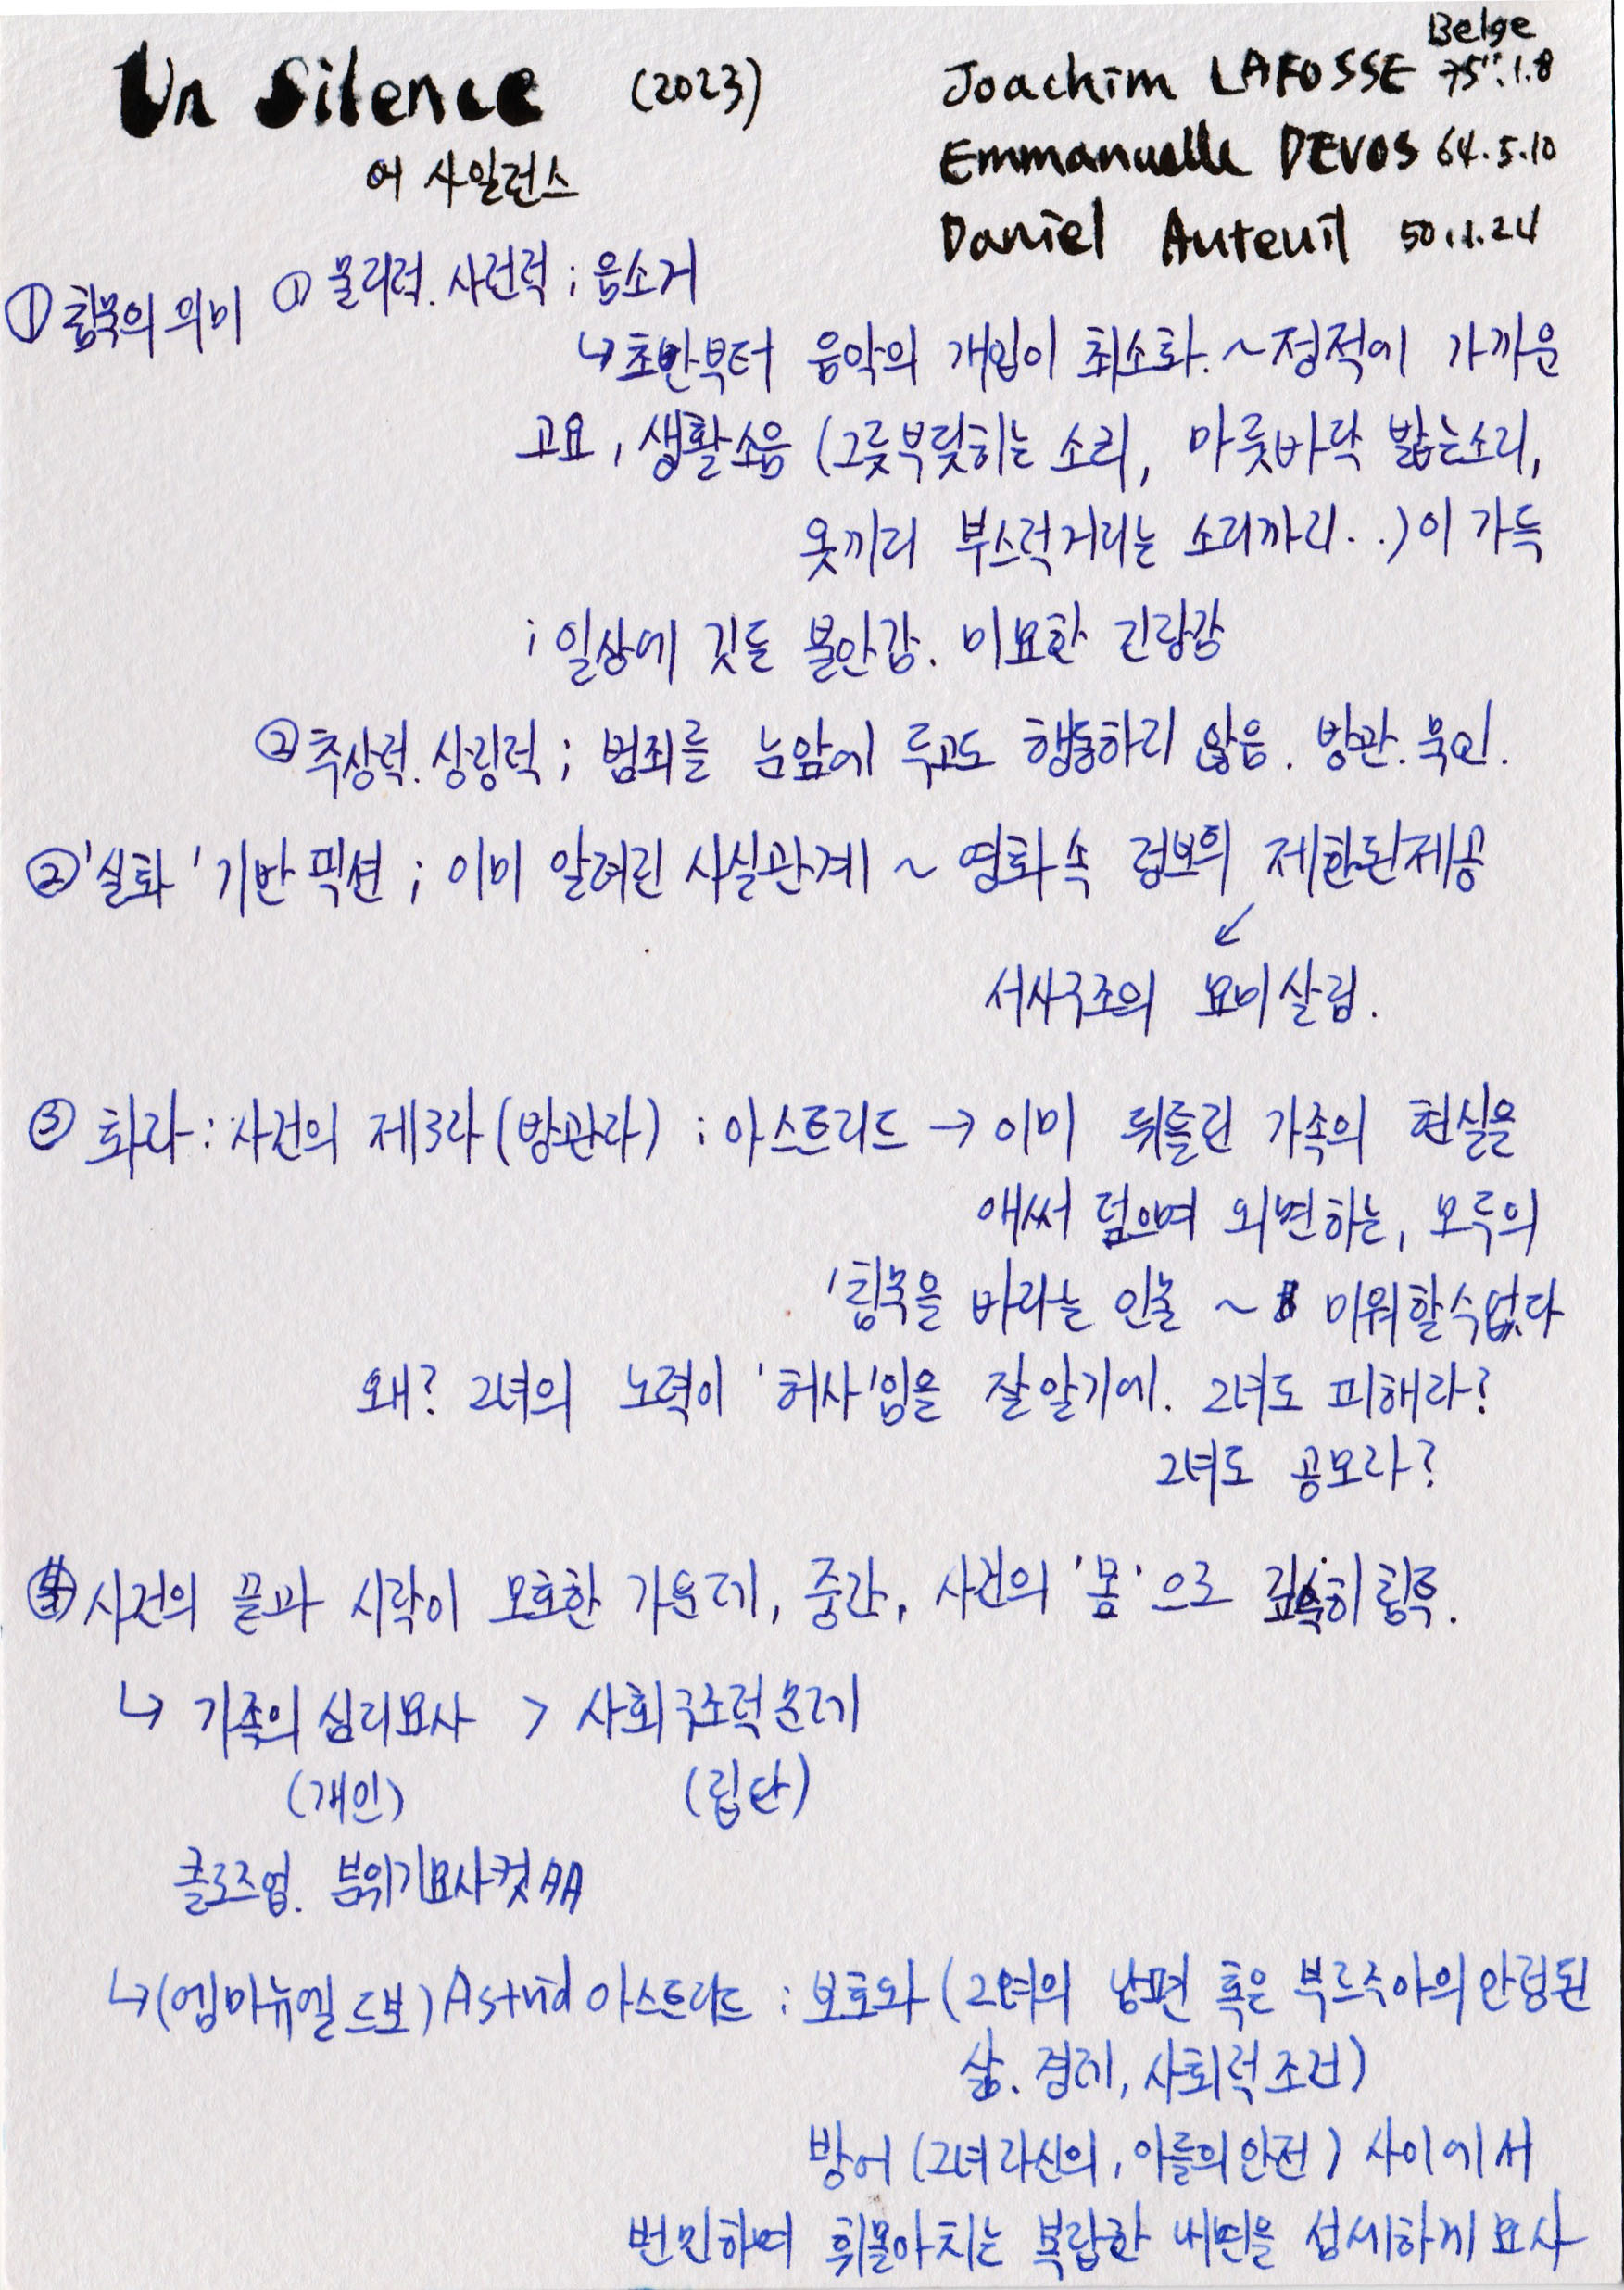 Un Silence (2023)
어 사일런스
Belge
Joachim LAFOSSE 75.1.8
Emmanuelle DEVOS 64.5.10
Daniel Auteuil 50.1.24
① 침묵의 의미 ① 물리적. 사전적 ; 음소거
↳ 초반부터 음악의 개입이 최소화. ~ 정적에 가까운
고요, 생활소음 (그릇부딪히는 소리, 마룻바닥 밟는소리,
옷끼리 부스럭거리는 소리까지..)이 가득
; 일상에 깃든 불안감. 미묘한 긴장감
② 추상적. 상징적 ; 범죄를 눈앞에 두고도 행동하지 않음. 방관. 묵인.
② '실화' 기반 픽션 ; 이미 알려진 사실관계 ~ 영화 속 정보의 제한된제공
↙
서사구조의 묘미 살림.
③ 화자 : 사건의 제3자 (방관자) ; 아스트리드 → 이미 뒤틀린 가족의 현실을
애써 덮으며 외면하는, 모두의
'침묵을 바라는 인물 ~ 미워할수없다
왜? 그녀의 노력이 '허사'임을 잘 알기에. 그녀도 피해자?
그녀도 공모자?
④ 사건의 끝과 시작이 모호한 가운데, 중간, 사건의 '몸'으로 깊숙히 침투.
↳ 가족의 심리묘사 > 사회구조적 문제
(개인) (집단)
클로즈업. 분위기묘사컷 AA
↳ (엠마뉴엘 드보) Astrid 아스트리드 : 보호와 (그녀의 남편 혹은 부르주아의 안정된
삶. 경제, 사회적 조건)
방어 (그녀 자신의, 아들의 안전) 사이에서
번민하며 휘몰아치는 복잡한 내면을 섬세하게 묘사